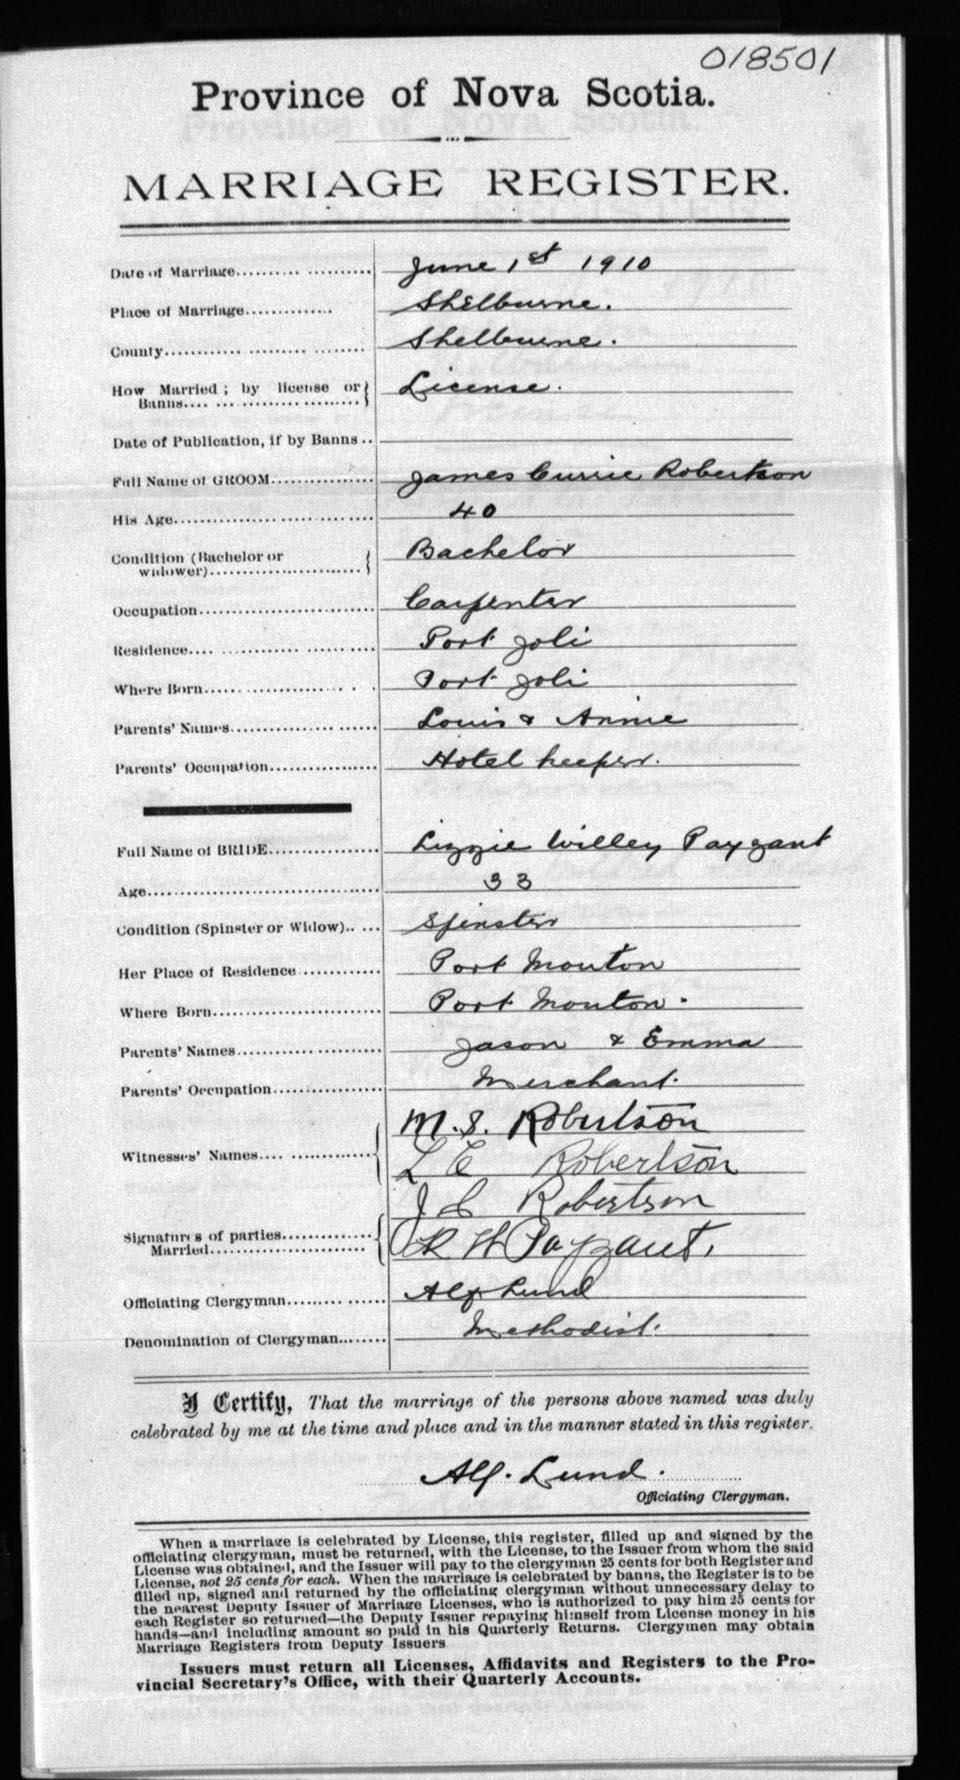 018501
Province of Nova Scotia.
MARRIAGE REGISTER.
Date of Marriage.......... June 1st 1910
Place of Marriage.......... Shelburne.
County.......... Shelburne.
How Married; by license or Banns.......... License.
Date of Publication, if by Banns..
Full Name of GROOM.......... James Currie Robertson
His Age.......... 40
Condition (Bachelor or widower).......... Bachelor
Occupation.......... Carpenter
Residence.......... Port Joli
Where Born.......... Port Joli
Parents' Names.......... Louis & Annie
Parents' Occupation.......... Hotel keeper.
Full Name of BRIDE.......... Lizzie Willey Payzant
Age.......... 33
Condition (Spinster or Widow)..... Spinster
Her Place of Residence.......... Port Mouton
Where Born.......... Port Mouton.
Parents' Names.......... Jason & Emma
Parents' Occupation.......... Merchant.
Witnesses' Names.......... M. S. Robertson
L C Robertson
Signatures of parties Married.......... J C Robertson
W Payzant.
Officiating Clergyman.......... Alf Lund
Denomination of Clergyman........ Methodist.
I Certify, That the marriage of the persons above named was duly
celebrated by me at the time and place and in the manner stated in this register.
Alf. Lund.
Officiating Clergyman.
When a marriage is celebrated by License, this register, filled up and signed by the
officiating clergyman, must be returned, with the License, to the Issuer from whom the said
License was obtained, and the Issuer will pay to the clergyman 25 cents for both Register and
License, not 25 cents for each. When the marriage is celebrated by banns, the Register is to be
filled up, signed and returned by the officiating clergyman without unnecessary delay to
the nearest Deputy Issuer of Marriage Licenses, who is authorized to pay him 25 cents for
each Register so returned—the Deputy Issuer repaying himself from License money in his
hands—and including amount so paid in his Quarterly Returns. Clergymen may obtain
Marriage Registers from Deputy Issuers
Issuers must return all Licenses, Affidavits and Registers to the Pro-
vincial Secretary's Office, with their Quarterly Accounts.